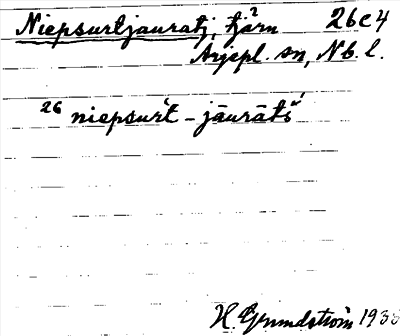 Niepsurtjauratj, tjärn 26c4
Arjepl. sn, Nb. l.
26 niepsurt - jāurātš
H. Grundström 1938